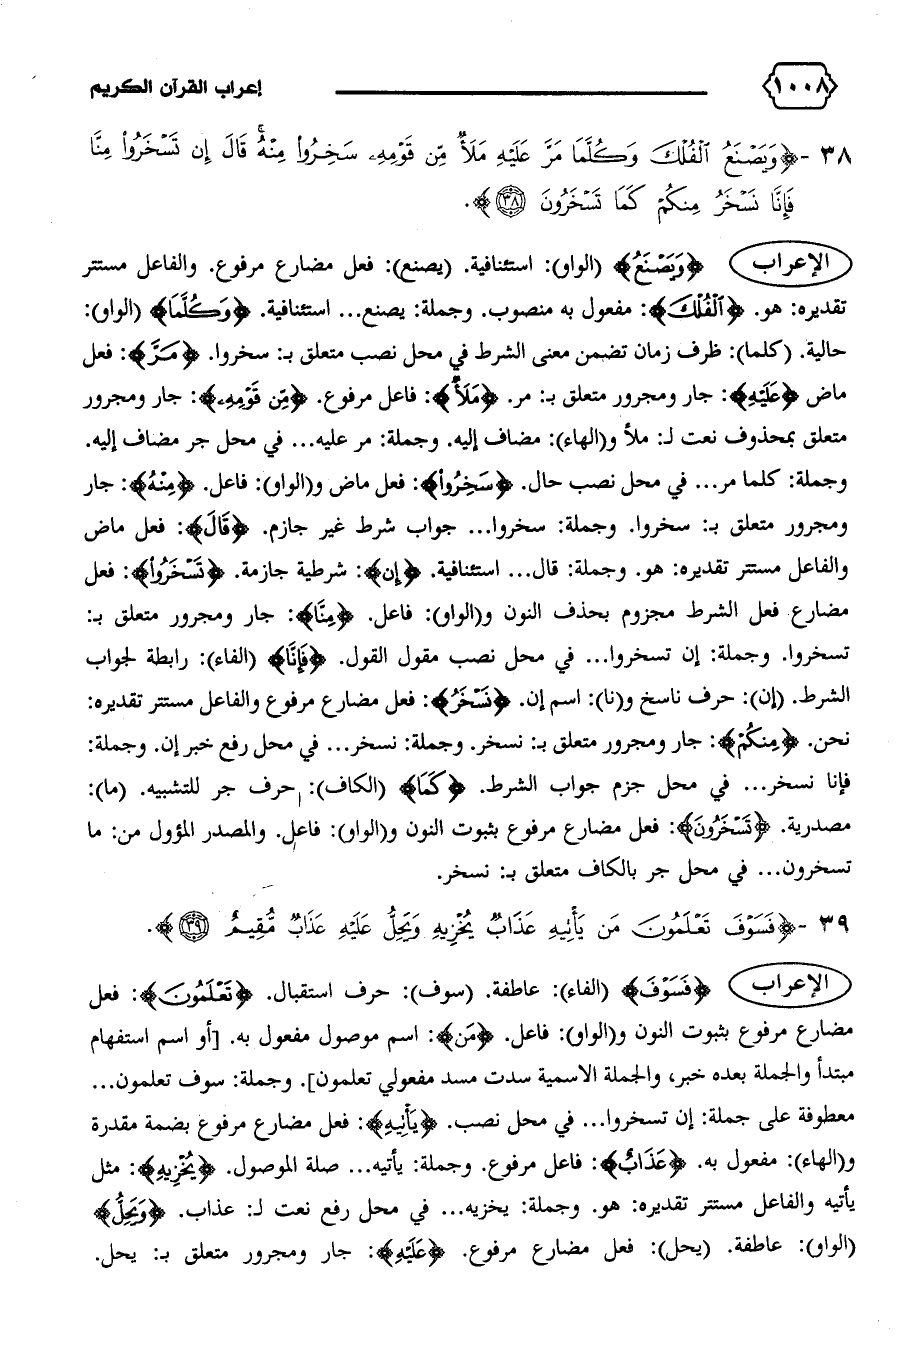 ١٠٠٨ إعراب القرآن الكريم
٣٨ - ﴿وَيَصْنَعُ ٱلْفُلْكَ وَكُلَّمَا مَرَّ عَلَيْهِ مَلَأٌ مِّن قَوْمِهِۦ سَخِرُوا۟ مِنْهُ ۚ قَالَ إِن تَسْخَرُوا۟ مِنَّا
فَإِنَّا نَسْخَرُ مِنكُمْ كَمَا تَسْخَرُونَ ٣٨﴾.
الإعراب ﴿وَيَصْنَعُ﴾ (الواو): استئنافية. (يصنع): فعل مضارع مرفوع. والفاعل مستتر
تقديره: هو. ﴿ٱلْفُلْكَ﴾: مفعول به منصوب. وجملة: يصنع... استئنافية. ﴿وَكُلَّمَا﴾ (الواو):
حالية. (كلما): ظرف زمان تضمن معنى الشرط في محل نصب متعلق بـ: سخروا. ﴿مَرَّ﴾: فعل
ماض ﴿عَلَيْهِ﴾: جار ومجرور متعلق بـ: مر. ﴿مَلَأٌ﴾: فاعل مرفوع. ﴿مِّن قَوْمِهِۦ﴾: جار ومجرور
متعلق بمحذوف نعت لـ: ملأ و(الهاء): مضاف إليه. وجملة: مر عليه... في محل جر مضاف إليه.
وجملة: كلما مر... في محل نصب حال. ﴿سَخِرُوا۟﴾: فعل ماض و(الواو): فاعل. ﴿مِنْهُ﴾: جار
ومجرور متعلق بـ: سخروا. وجملة: سخروا... جواب شرط غير جازم. ﴿قَالَ﴾: فعل ماض
والفاعل مستتر تقديره: هو. وجملة: قال... استئنافية. ﴿إِن﴾: شرطية جازمة. ﴿تَسْخَرُوا۟﴾: فعل
مضارع فعل الشرط مجزوم بحذف النون و(الواو): فاعل. ﴿مِنَّا﴾: جار ومجرور متعلق بـ:
تسخروا. وجملة: إن تسخروا... في محل نصب مقول القول. ﴿فَإِنَّا﴾ (الفاء): رابطة لجواب
الشرط. (إن): حرف ناسخ و(نا): اسم إن. ﴿نَسْخَرُ﴾: فعل مضارع مرفوع والفاعل مستتر تقديره:
نحن. ﴿مِنكُمْ﴾: جار ومجرور متعلق بـ: نسخر. وجملة: نسخر... في محل رفع خبر إن. وجملة:
فإنا نسخر... في محل جزم جواب الشرط. ﴿كَمَا﴾ (الكاف): حرف جر للتشبيه. (ما):
مصدرية. ﴿تَسْخَرُونَ﴾: فعل مضارع مرفوع بثبوت النون و(الواو): فاعل. والمصدر المؤول من: ما
تسخرون... في محل جر بالكاف متعلق بـ: نسخر.
٣٩ - ﴿فَسَوْفَ تَعْلَمُونَ مَن يَأْتِيهِ عَذَابٌ يُخْزِيهِ وَيَحِلُّ عَلَيْهِ عَذَابٌ مُّقِيمٌ ٣٩﴾.
الإعراب ﴿فَسَوْفَ﴾ (الفاء): عاطفة. (سوف): حرف استقبال. ﴿تَعْلَمُونَ﴾: فعل
مضارع مرفوع بثبوت النون و(الواو): فاعل. ﴿مَن﴾: اسم موصول مفعول به. [أو اسم استفهام
مبتدأ والجملة بعده خبر، والجملة الاسمية سدت مسد مفعولي تعلمون]. وجملة: سوف تعلمون...
معطوفة على جملة: إن تسخروا... في محل نصب. ﴿يَأْتِيهِ﴾: فعل مضارع مرفوع بضمة مقدرة
و(الهاء): مفعول به. ﴿عَذَابٌ﴾: فاعل مرفوع. وجملة: يأتيه... صلة الموصول. ﴿يُخْزِيهِ﴾: مثل
يأتيه والفاعل مستتر تقديره: هو. وجملة: يخزيه... في محل رفع نعت لـ: عذاب. ﴿وَيَحِلُّ﴾
(الواو): عاطفة. (يحل): فعل مضارع مرفوع. ﴿عَلَيْهِ﴾: جار ومجرور متعلق بـ: يحل.